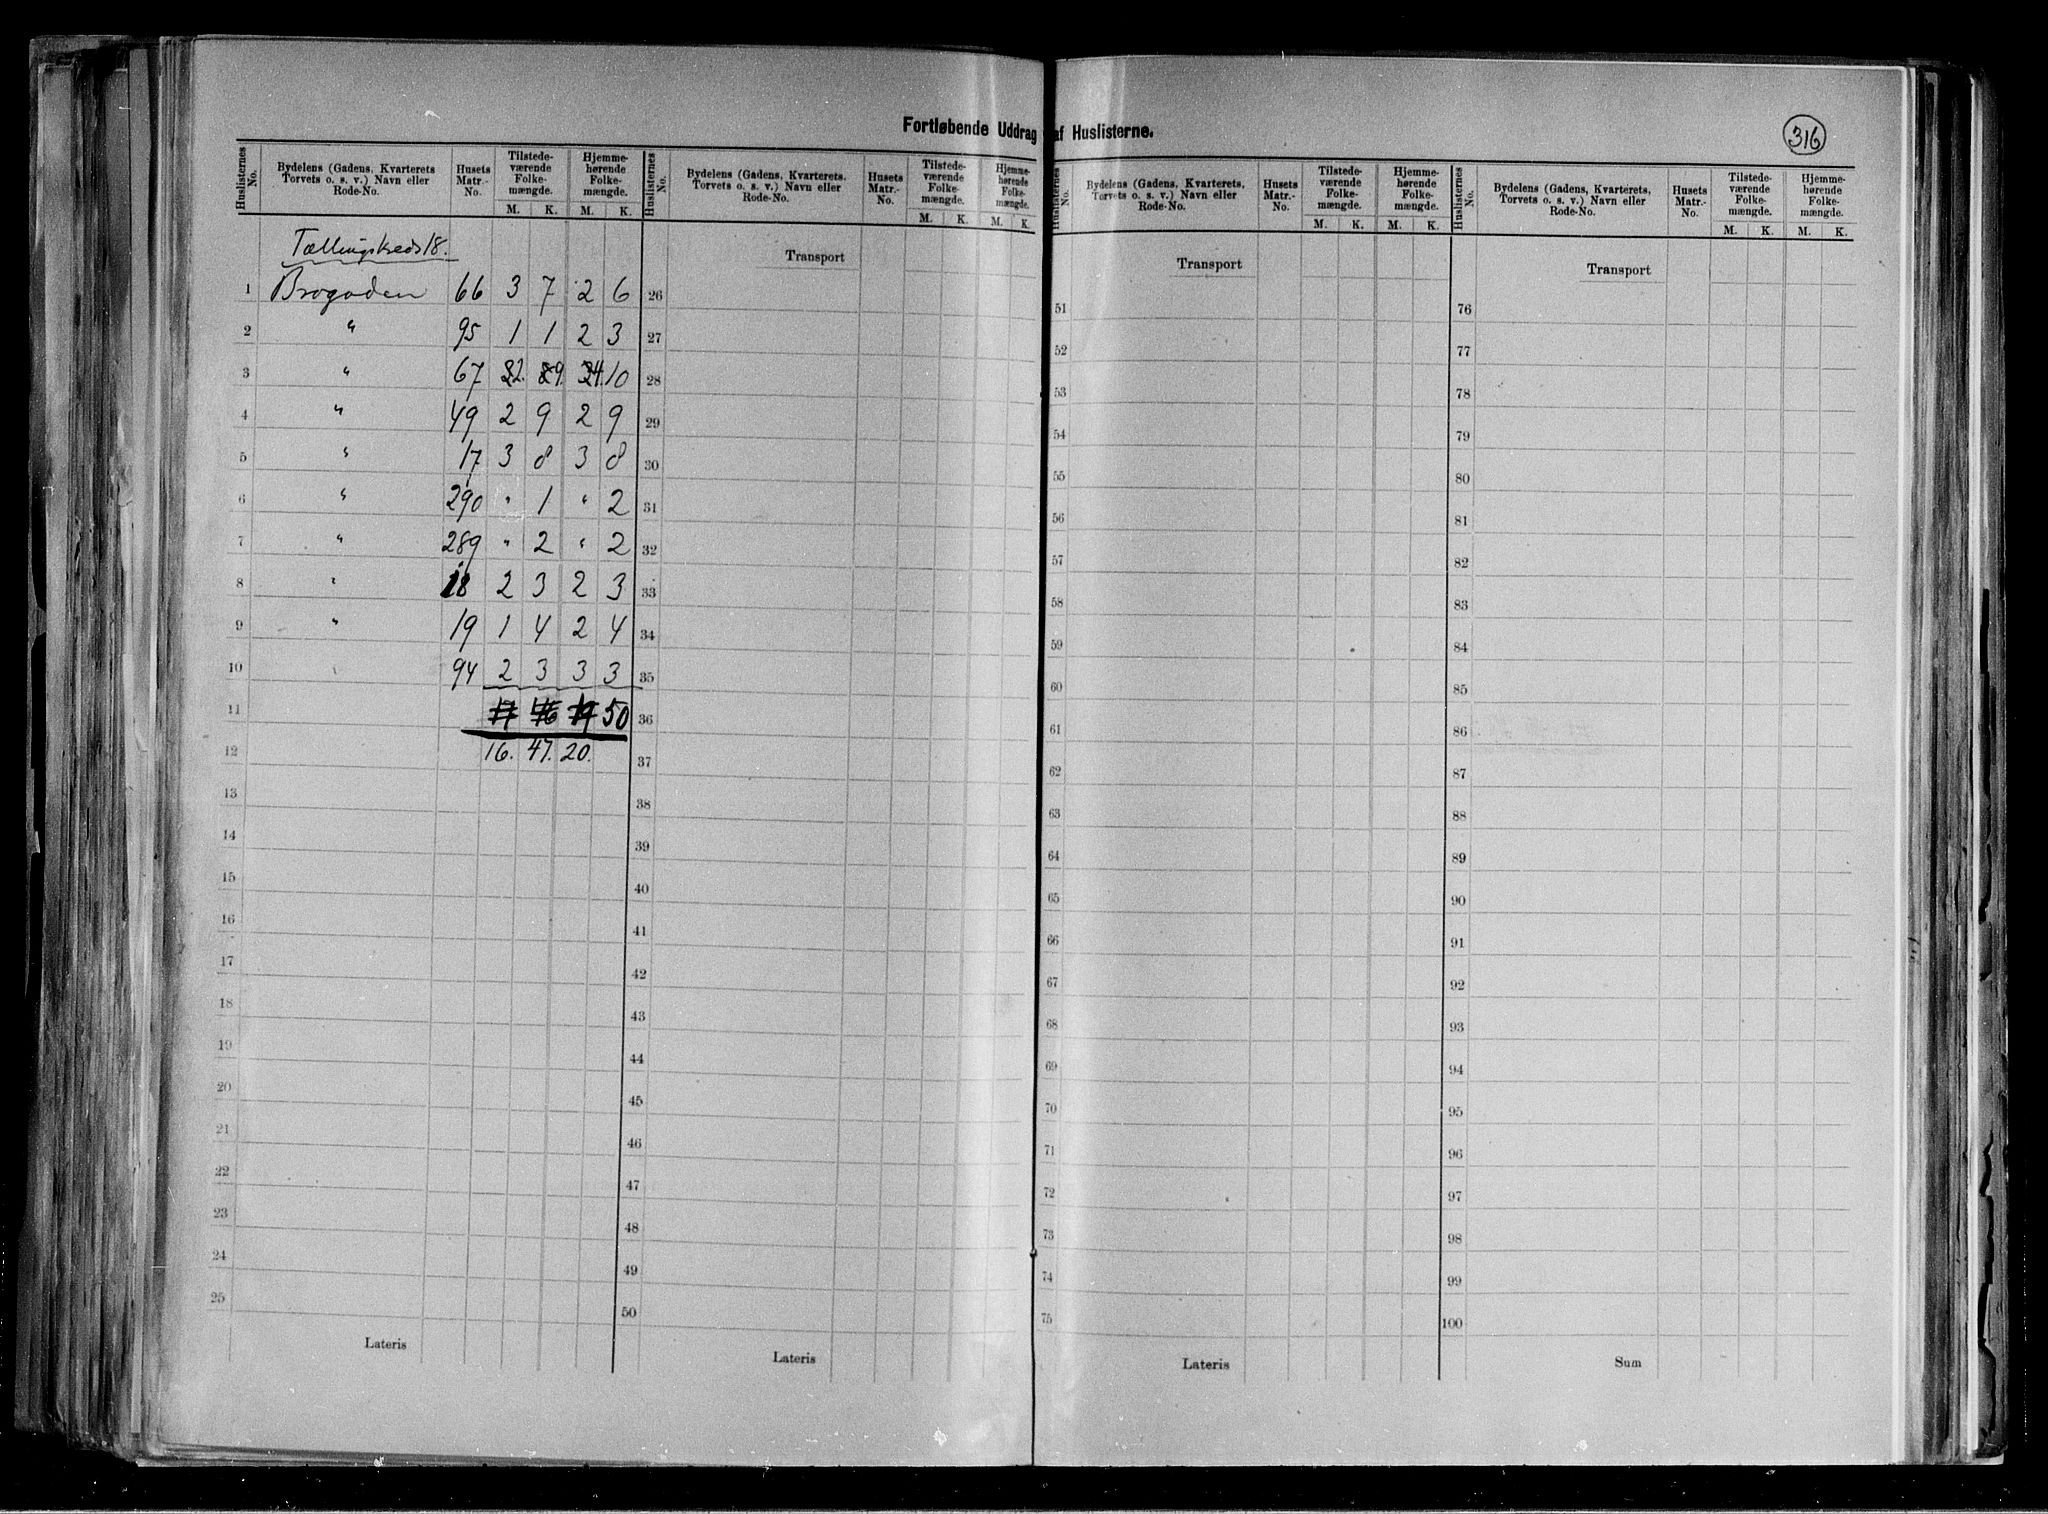 Fortløbende Uddrag af Huslisterne.
316
Huslisternes No. Bydelens (Gadens, Kvarterets Torvets o. s. v.) Navn eller Rode-No. Husets Matr.-No. Tilstede-værende Folke-mængde. M. K. Hjemme-hørende Folke-mængde. M. K.
Tællingskreds 18.
1 Brogaden 66 3 7 2 6
2 " 95 1 1 2 3
3 " 67 2. 9. 4. 10
4 " 49 2 9 2 9
5 " 17 3 8 3 8
6 " 290 " 1 " 2
7 " 289 " 2 " 2
8 " 18 2 3 2 3
9 " 19 1 4 2 4
10 " 94 2 3 3 3
11 17 46 19 50
12 16. 47. 20.
13
14
15
16
17
18
19
20
21
22
23
24
25
Lateris
Huslisternes No. Bydelens (Gadens, Kvarterets, Torvets o. s. v.) Navn eller Rode-No. Husets Matr.-No. Tilstede-værende Folke-mængde. M. K. Hjemme-hørende Folke-mængde. M. K.
Transport
26
27
28
29
30
31
32
33
34
35
36
37
38
39
40
41
42
43
44
45
46
47
48
49
50
Lateris
Huslisternes No. Bydelens (Gadens, Kvarterets, Torvets o. s. v.) Navn eller Rode-No. Husets Matr.-No. Tilstede-værende Folke-mængde. M. K. Hjemme-hørende Folke-mængde. M. K.
Transport
51
52
53
54
55
56
57
58
59
60
61
62
63
64
65
66
67
68
69
70
71
72
73
74
75
Lateris
Huslisternes No. Bydelens (Gadens, Kvarterets, Torvets o. s. v.) Navn eller Rode-No. Husets Matr.-No. Tilstede-værende Folke-mængde. M. K. Hjemme-hørende Folke-mængde. M. K.
Transport
76
77
78
79
80
81
82
83
84
85
86
87
88
89
90
91
92
93
94
95
96
97
98
99
100
Sum